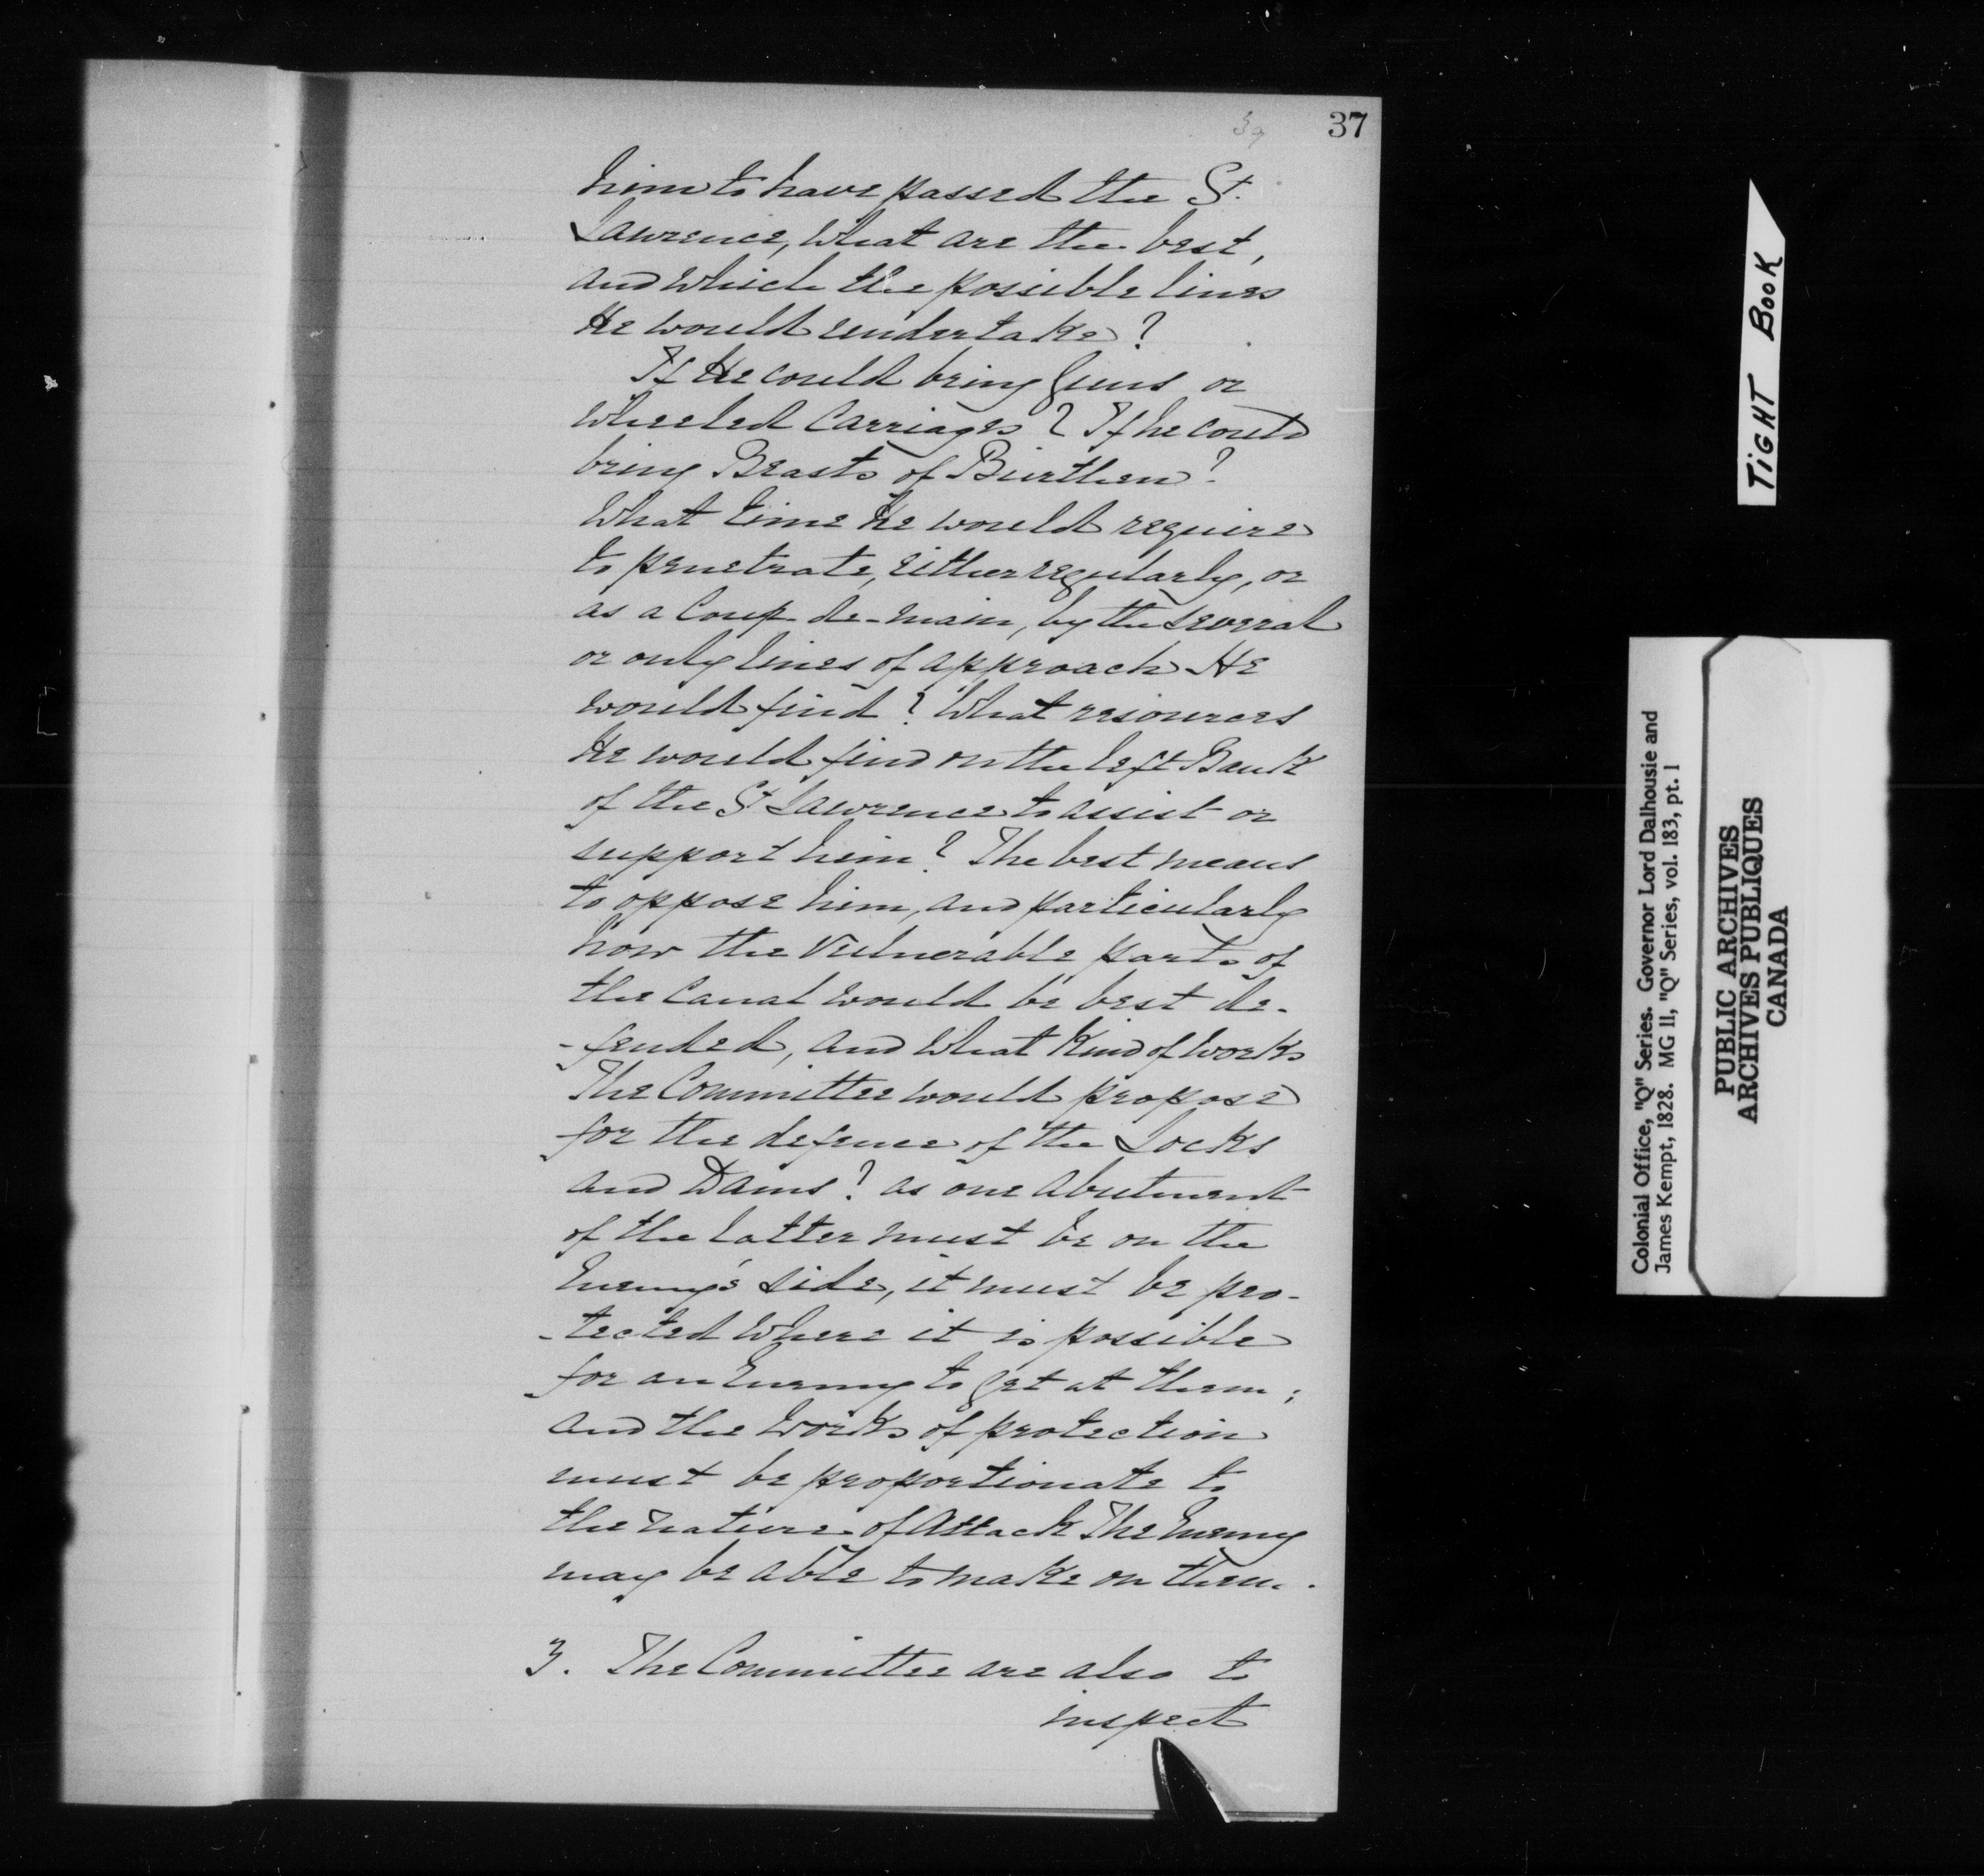 39
37
him to have passed the St.
Lawrence, What are the best,
and which the possible lines
He would undertake?
If He could bring Guns or
wheeled Carriages? If he could
bring Beasts of Burthen?
What time He would require
to penetrate, either regularly, or
as a Coup-de-main, by the several
or only lines of approach He
would find? What resources
He would find on the left Bank
of the St Lawrence to assist or
support him? The best means
to oppose him, and particularly
how the Vulnerable parts of
the Canal would be best de-
-fended, and what Kind of Works
The Committee would propose
for the defence of the Locks
and Dams? as one abutment
of the latter must be on the
Enemy's side, it must be pro-
-tected where it is possible
for an Enemy to get at them;
and the Works of protection
must be proportionate to
the nature of Attack The Enemy
may be able to make on them.
3. The Committee are also to
inspect
TIGHT BOOK
Colonial Office, "Q" Series. Governor Lord Dalhousie and
James Kempt, 1828. MG 11, "Q" Series, vol. 183, pt. 1
PUBLIC ARCHIVES
ARCHIVES PUBLIQUES
CANADA